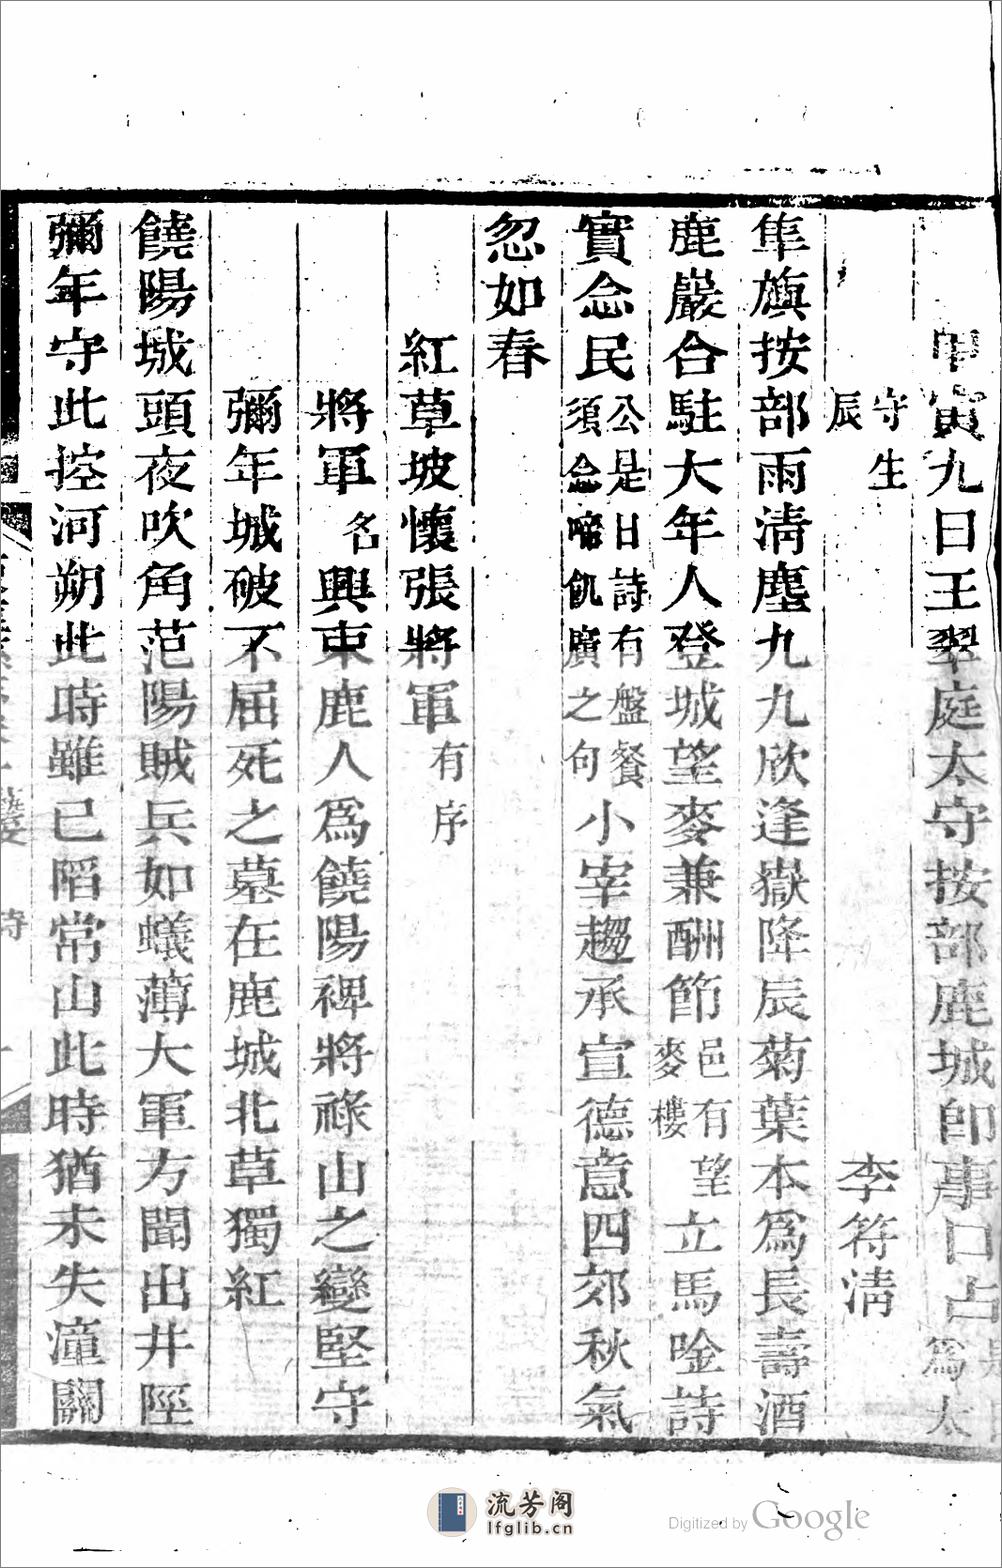 甲寅九日王翠庭太守按部鹿城即事口占是日爲太
守生辰　李符淸
隼旟按部雨淸塵九九欣逢嶽降辰菊葉本爲長壽酒
鹿巖合駐大年人登城望麥兼酬節邑有望麥樓立馬唫詩
實念民公是日詩有盤餐須念啼飢廣之句小宰趨承宣德意四郊秋氣
忽如春
紅草坡懷張將軍有序
將軍名興束鹿人爲饒陽裨將祿山之變堅守
彌年城破不屈死之墓在鹿城北草獨紅
饒陽城頭夜吹角范陽賊兵如蟻薄大軍方聞出井陘
彌年守此控河朔此時雖已陷常山此時猶未失潼關
流芳阁
lfglib.cn
Digitized by Google